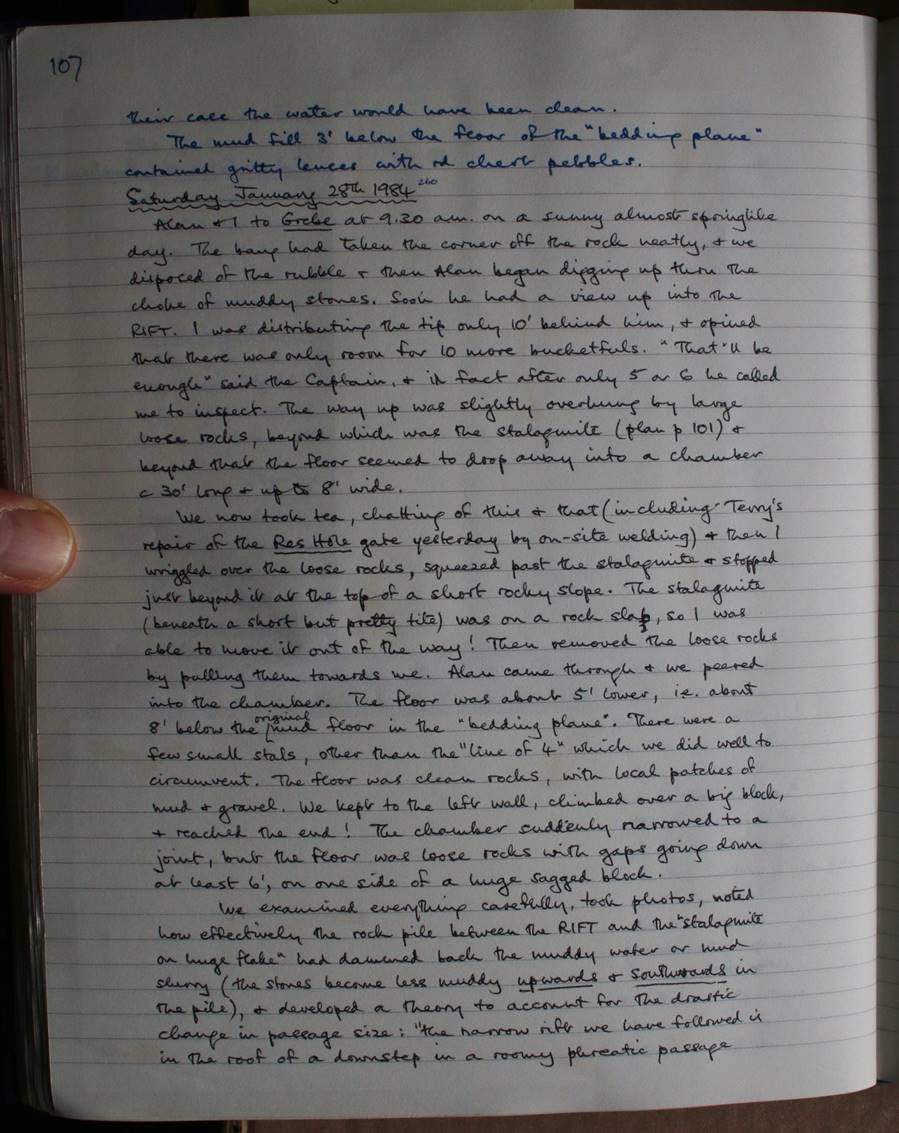 107
their case the water would have been clean.
The mud fill 3' below the floor of the "bedding plane"
contained gritty lenses with rd chert pebbles.
Saturday January 28th 1984 260
Alan & I to Grebe at 9.30 a.m. on a sunny almost springlike
day. The bang had taken the corner off the rock neatly, & we
disposed of the rubble & then Alan began digging up thru the
choke of muddy stones. Soon he had a view up into the
RIFT. I was distributing the tip only 10' behind him, & opined
that there was only room for 10 more bucketfuls. "That'll be
enough" said the Captain, & in fact after only 5 or 6 he called
me to inspect. The way up was slightly overhung by large
loose rocks, beyond which was the stalagmite (plan p 101) &
beyond that the floor seemed to drop away into a chamber
c 30' long & up to 8' wide.
We now took tea, chatting of this & that (including Terry's
repair of the Res Hole gate yesterday by on-site welding) & then I
wriggled over the loose rocks, squeezed past the stalagmite & stopped
just beyond it at the top of a short rocky slope. The stalagmite
(beneath a short but pretty tite) was on a rock slab, so I was
able to move it out of the way! Then removed the loose rocks
by pulling them towards me. Alan came through & we peered
into the chamber. The floor was about 5' lower, i.e. about
8' below the original mud floor in the "bedding plane". There were a
few small stals, other than the "line of 4" which we did well to
circumvent. The floor was clean rocks, with local patches of
mud & gravel. We kept to the left wall, climbed over a big block,
& reached the end! The chamber suddenly narrowed to a
joint, but the floor was loose rocks with gaps going down
at least 6', on one side of a huge sagged block.
We examined everything carefully, took photos, noted
how effectively the rock pile between the RIFT and the "stalagmite
on huge flake" had dammed back the muddy water or mud
slurry (the stones become less muddy upwards & southwards in
the pile), & developed a theory to account for the drastic
change in passage size: "the narrow rift we have followed is
in the roof of a downstep in a roomy phreatic passage